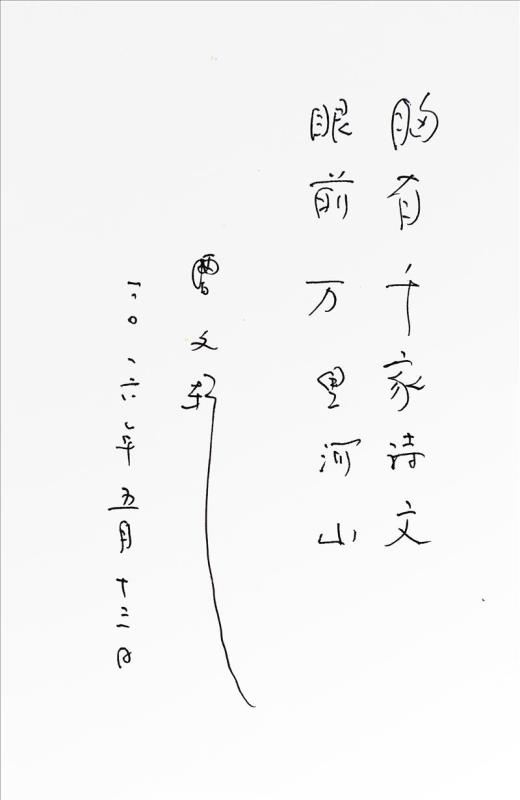 胸有千家诗文
眼前万里河山
曹文轩
二〇一六年五月十三日